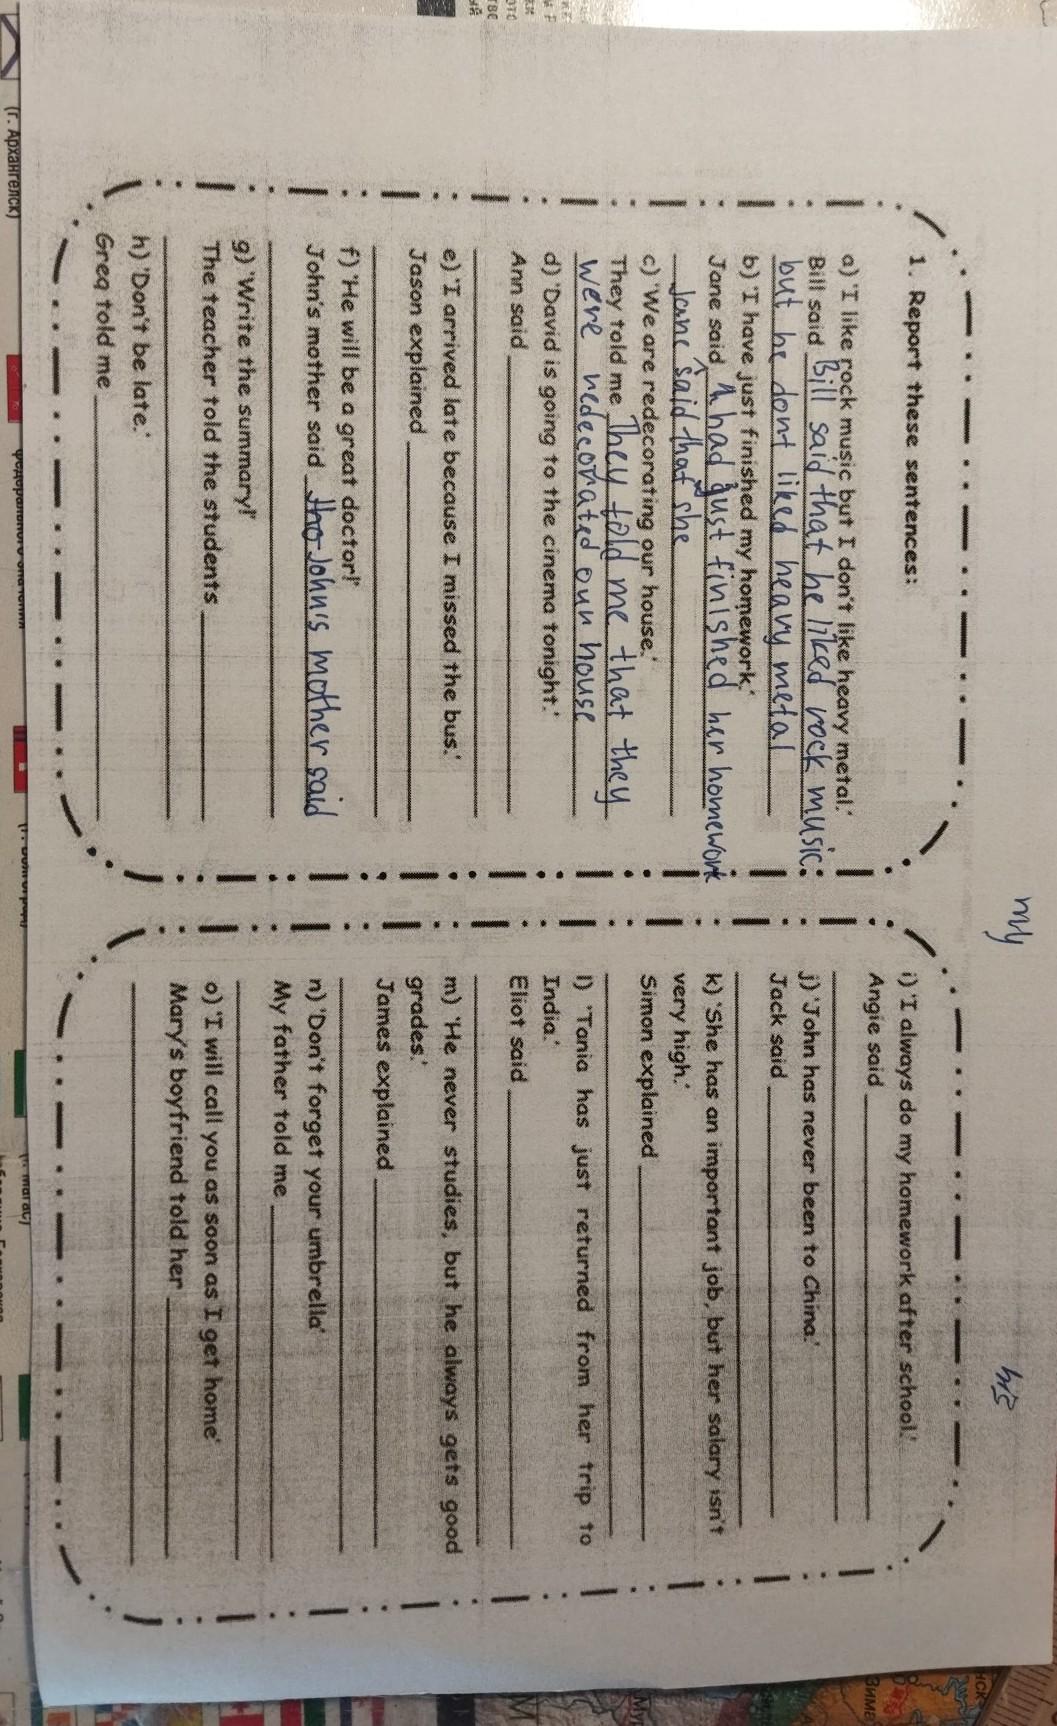 my
his
1. Report these sentences:
a) 'I like rock music but I don't like heavy metal.'
Bill said Bill said that he liked rock music.
but he dont liked heavy metal
b) 'I have just finished my homework.'
Jane said had just finished her homework
Jane said that she
c) 'We are redecorating our house.'
They told me They told me that they
were redecorated our house
d) 'David is going to the cinema tonight.'
Ann said
e) 'I arrived late because I missed the bus.'
Jason explained
f) 'He will be a great doctor!'
John's mother said John's mother said
g) 'Write the summary!'
The teacher told the students
h) 'Don't be late.'
Greg told me
i) 'I always do my homework after school.'
Angie said
j) 'John has never been to China.'
Jack said
k) 'She has an important job, but her salary isn't
very high.'
Simon explained
l) 'Tania has just returned from her trip to
India.'
Eliot said
m) 'He never studies, but he always gets good
grades.'
James explained
n) 'Don't forget your umbrella'
My father told me
o) 'I will call you as soon as I get home'
Mary's boyfriend told her
(г. Архангельск)